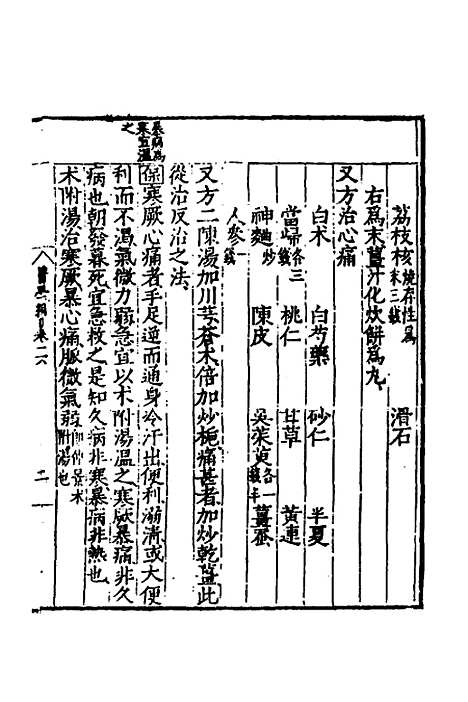 荔枝核燒存性爲末三錢 滑石
右爲末薑汁化炊餅爲丸
又方治心痛
白朮 白芍藥 砂仁 半夏
當歸各三錢 桃仁 甘草 黃連
神麯炒 陳皮 吳茱萸各一錢半 薑蠶
人參一錢
又方二陳湯加川芎蒼朮倍加炒梔痛甚者加炒乾薑此
從治反治之法
暴病爲寒宜溫之
保寒厥心痛者手足逆而通身冷汗出便利溺清或大便
利而不渴氣微力弱急宜以朮附湯溫之寒厥暴痛非久
病也朝發暮死宜急救之是知久病非寒暴病非熱也
朮附湯治寒厥暴心痛脈微氣弱即仲景朮附湯也
卷二六
二